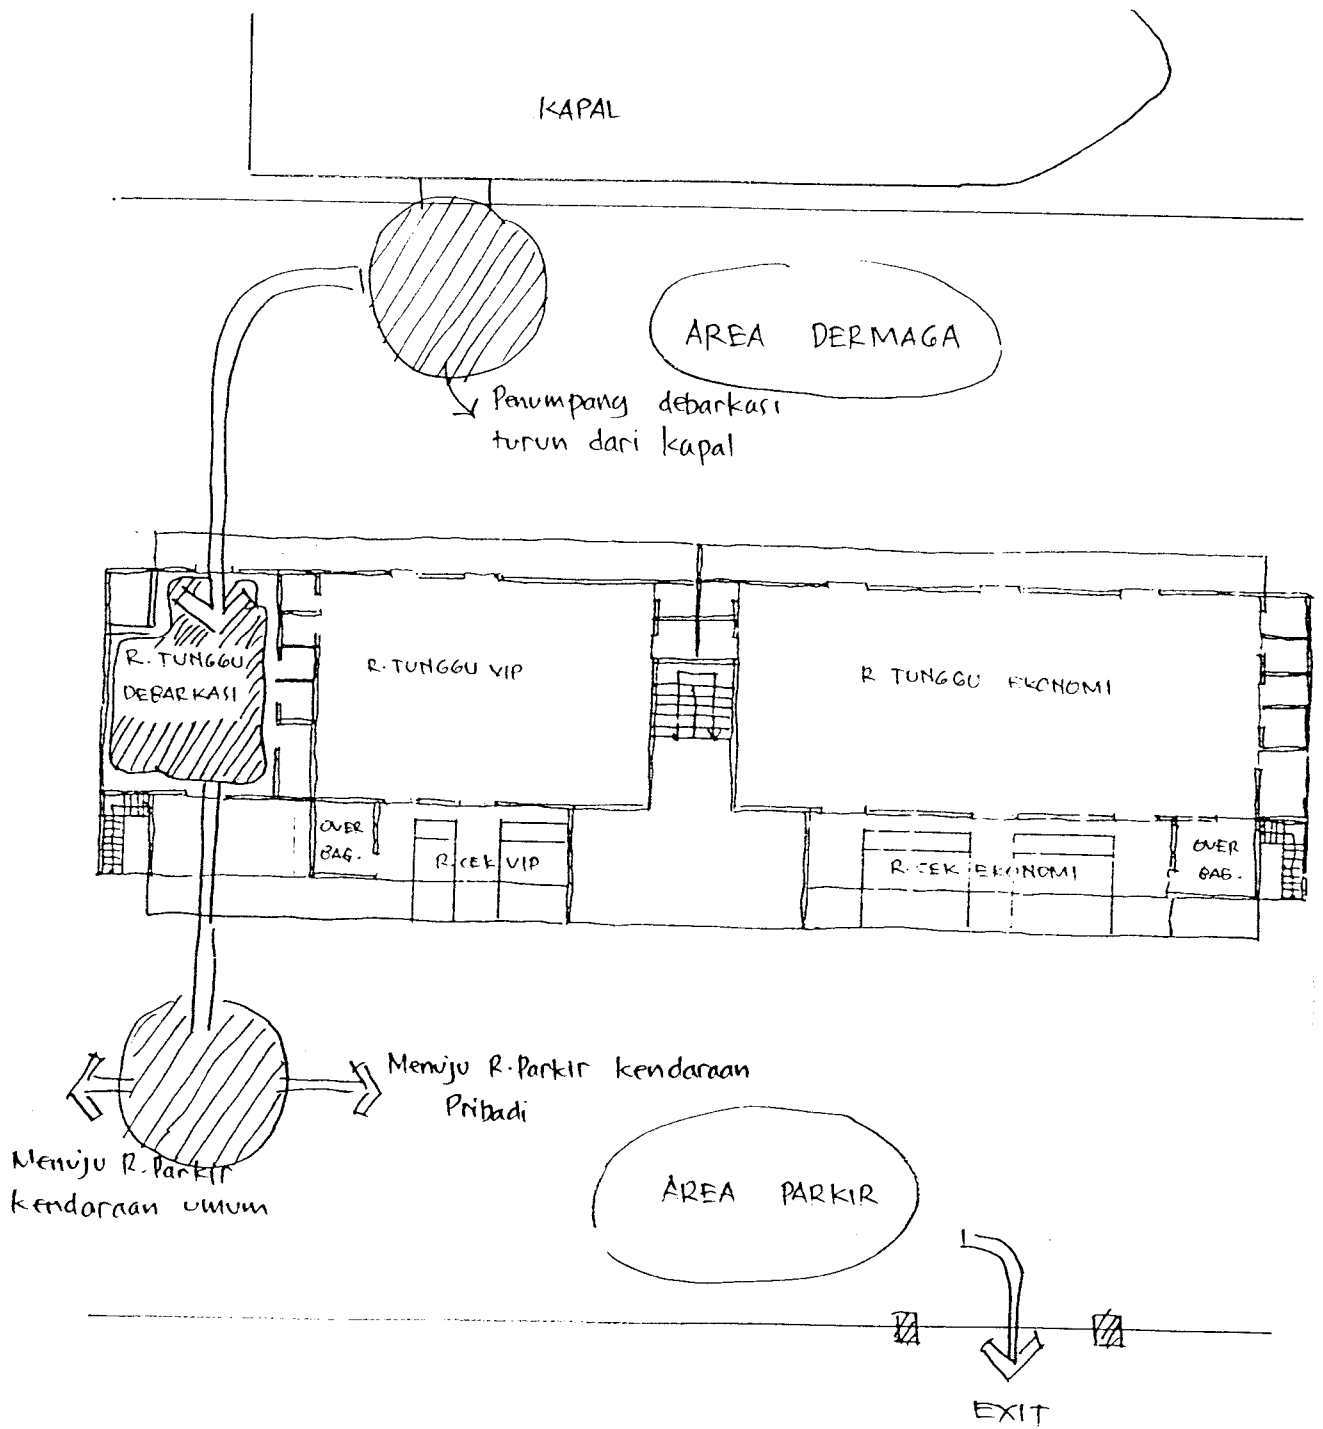 KAPAL
AREA DERMAGA
Penumpang debarkasi
turun dari kapal
R. TUNGGU
DEBARKASI
R. TUNGGU VIP
R TUNGGU EKONOMI
OVER
BAG.
R. CEK VIP
R. CEK EKONOMI
OVER
BAG.
Menuju R. Parkir kendaraan
Pribadi
Menuju R. Parkir
kendaraan umum
AREA PARKIR
EXIT